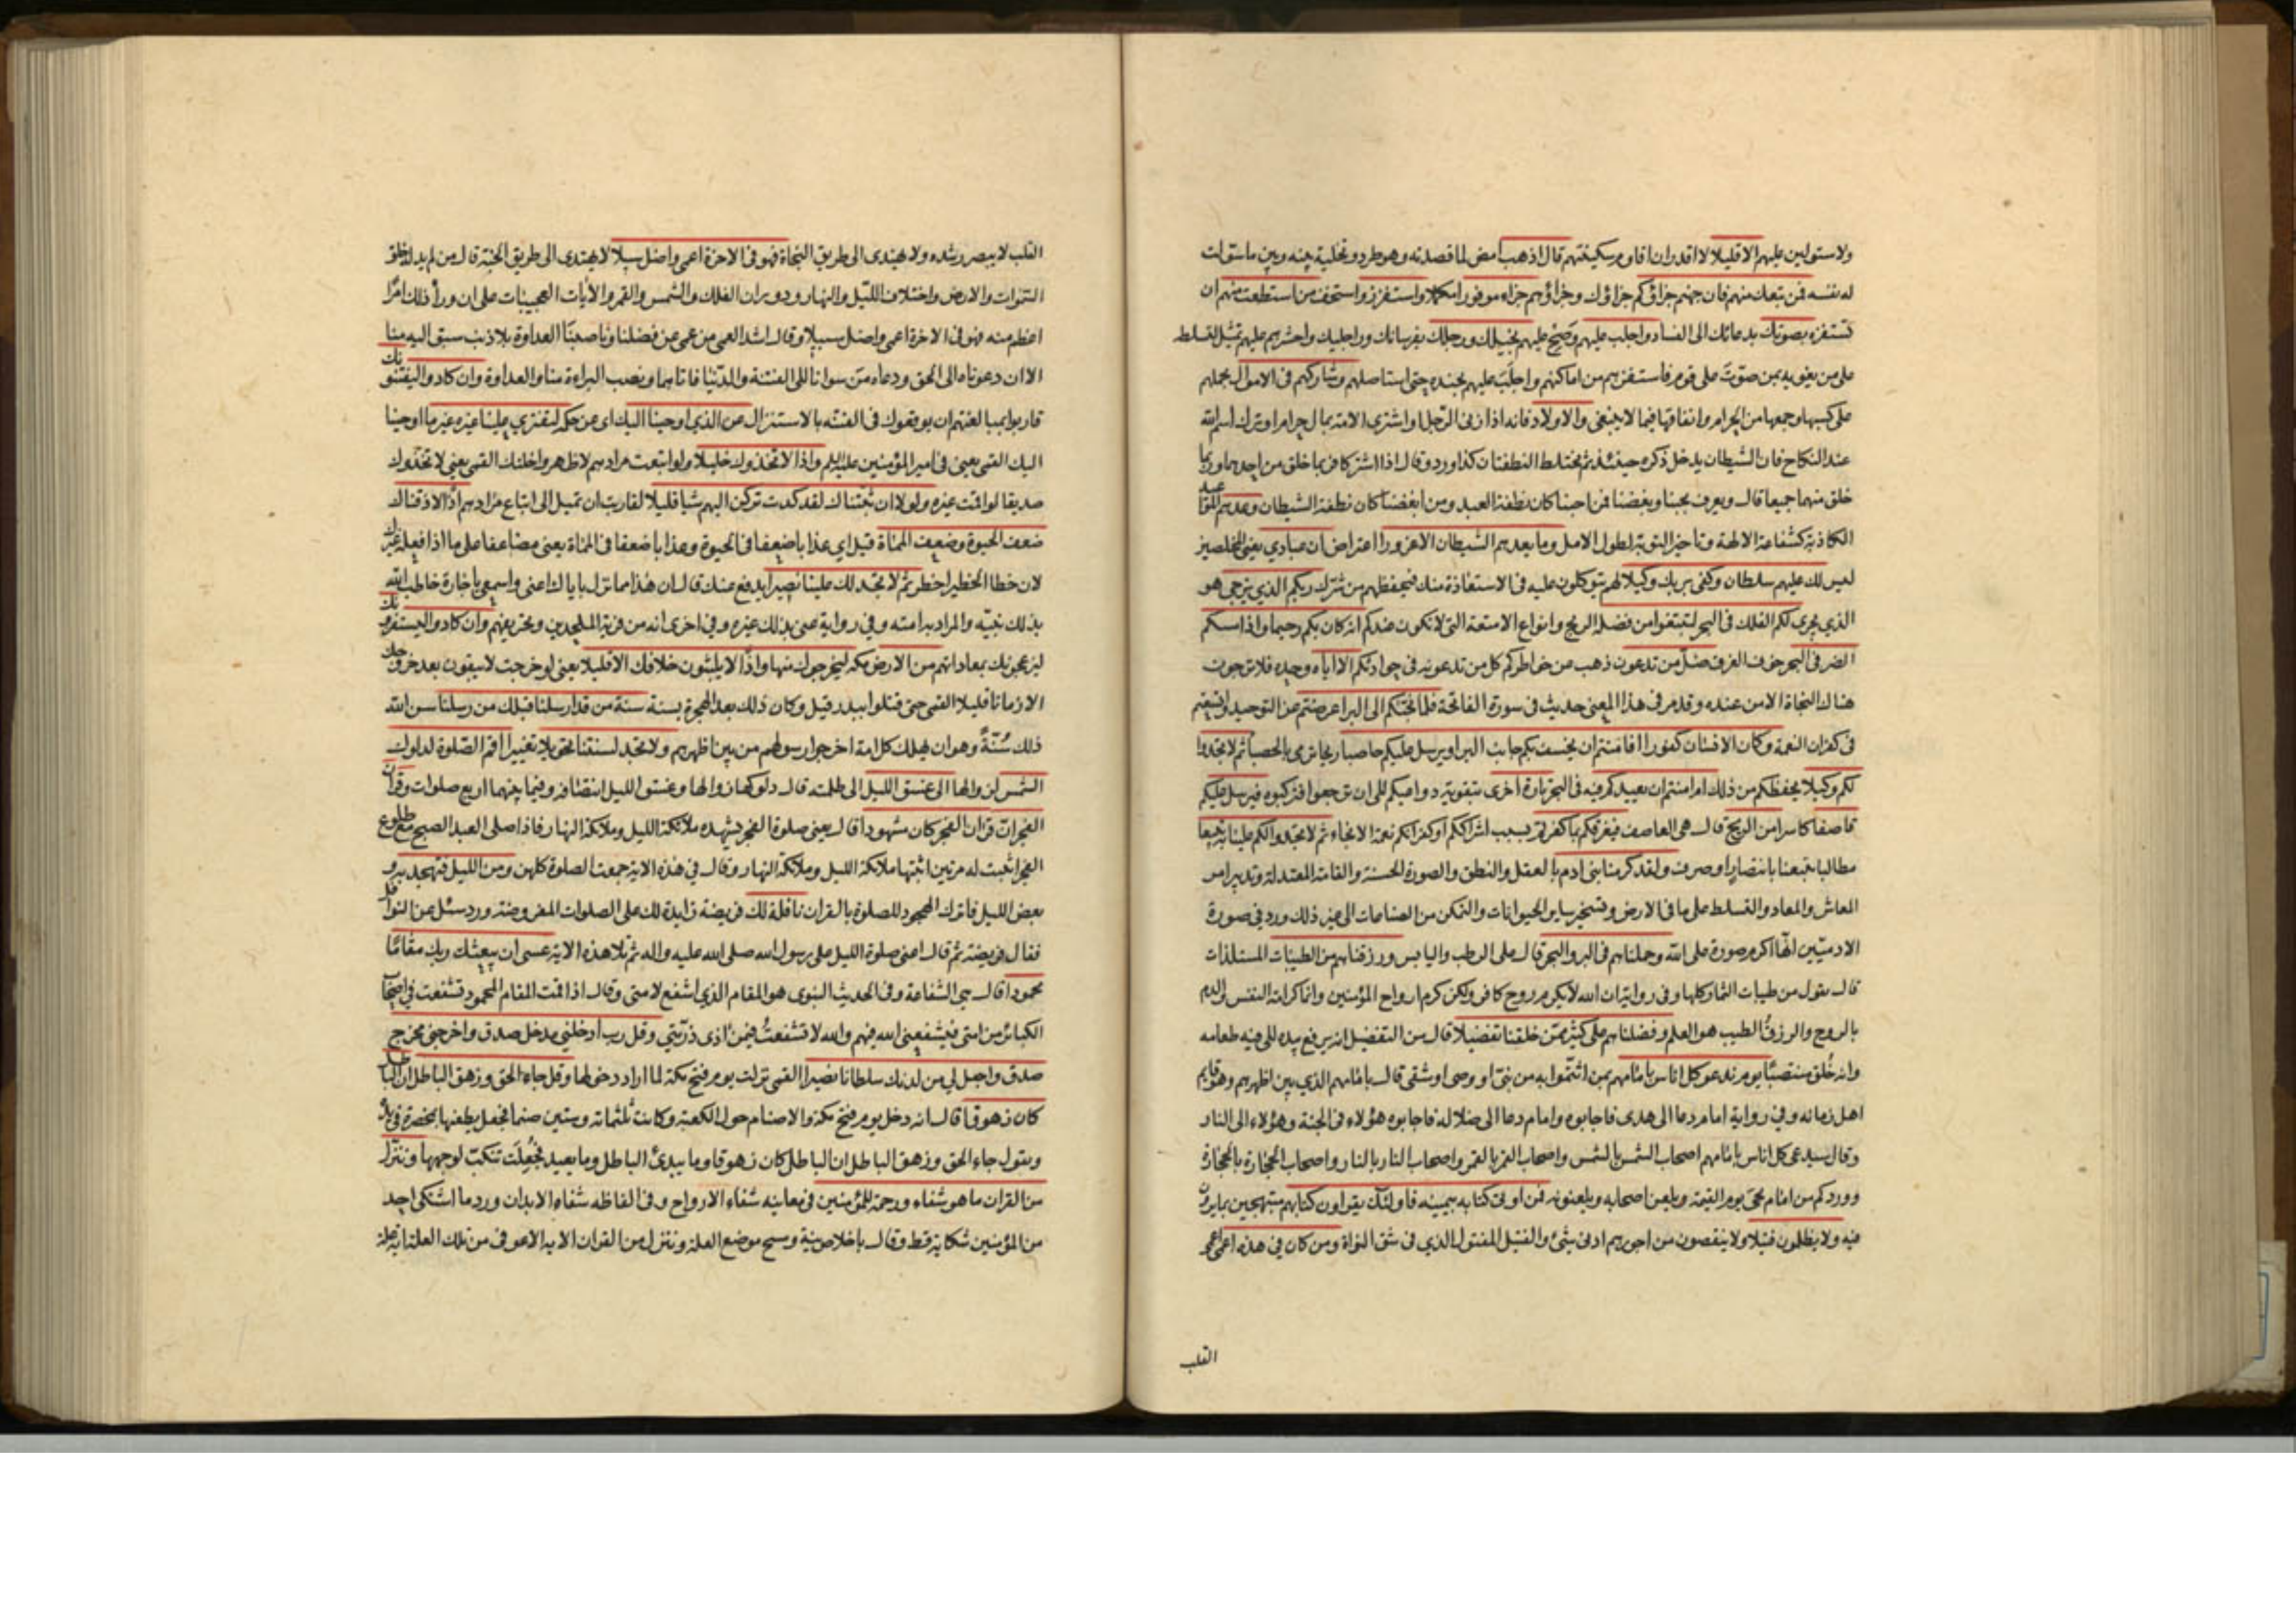 ولاستولين عليهم الا قليلا لا اقدر ان اقاوم سكينتهم قال اذهب امض لما قصدته وهو طرد وتخلية بينه وبين ما سولت
له نفسه فمن تبعك منهم فان جهنم جزاؤكم جزاؤك وجزاؤهم جزاء موفورا مكملا واستفزز واستخف من استطعت منهم ان
تستفزه بصوتك بدعائك الى الفساد واجلب عليهم وصح عليهم بخيلك ورجلك بفرسانك وراجليك واحشرهم عليهم تمثيل لتسلطه
على من يغويه بمن صوت على قوم فاستفزهم من اماكنهم واجلب عليهم بجنده حتى استاصلهم وشاركهم في الاموال بحملهم
على كسبها وجمعها من الحرام وانفاقها فيما لا ينبغي والاولاد فانه اذا زنى الرجل واشترى الامة بمال حرام او ترك اسم الله
عند النكاح فان الشيطان يدخل ذكره حينئذ ثم يختلط النطفتان كذا ورد وقال اذا اشتركا فربما خلق من احدهما وربما
خلق منهما جميعا قال ويعرف بحبنا وبغضنا فمن احبنا كان نطفة العبد ومن ابغضنا كان نطفة الشيطان وعدهم المواعيد
الكاذبة كشفاعة الالهة وتاخير التوبة لطول الامل وما يعدهم الشيطان الا غرورا اعتراض ان عبادي يعني المخلصين
ليس لك عليهم سلطان وكفى بربك وكيلا لهم يتوكلون عليه في الاستعاذة منك فيحفظهم من شرك ربكم الذي يزجي هو
الذي يجرى لكم الفلك في البحر لتبتغوا من فضله الريح وانواع الامتعة التي لا تكون عندكم انه كان بكم رحيما واذا مسكم
الضر في البحر خوف الغرق ضل من تدعون ذهب عن خواطركم كل من تدعونه في حوادثكم الا اياه وحده فلا ترجون
هناك النجاة الا من عنده وقد مر في هذا المعنى حديث في سورة الفاتحة فلما نجيكم الى البر اعرضتم عن التوحيد او تبعتم
في كفران النعمة وكان الانسان كفورا افامنتم ان يخسف بكم جانب البر او يرسل عليكم حاصبا ريحا ترمى بالحصباء ثم لا تجدوا
لكم وكيلا يحفظكم من ذلك ام امنتم ان يعيدكم فيه في البحر تارة اخرى بتقوية دواعيكم الى ان ترجعوا فتركبوه فيرسل عليكم
قاصفا كاسرا من الريح قال هي العاصف فيغرقكم بما كفرتم بسبب اشراككم او كفرانكم نعمة الانجاء ثم لا تجدوا لكم علينا به تبيعا
مطالبا يتبعنا بانتصار او صرف ولقد كرمنا بني ادم بالعقل والنطق والصورة الحسنة والقامة المعتدلة وتدبير امر
المعاش والمعاد والتسلط على ما في الارض وتسخير ساير الحيوانات والتمكن من الصناعات الى غير ذلك ورد في صورة
الادميين انها اكرم صورة على الله وحملناهم في البر والبحر قال على الرطب واليابس ورزقناهم من الطيبات المستلذات
قال يقول من طيبات الثمار كلها وفي رواية ان الله لا يكرم روح كافر ولكن كرم ارواح المؤمنين وانما كرامة النفس والدم
بالروح والرزق الطيب هو العلم وفضلناهم على كثير ممن خلقنا تفضيلا قال من التفضيل انه يرفع بيده الى فيه طعامه
وانه خلق منتصبا يوم ندعو كل اناس بامامهم بمن ائتموا به من نبي او وصي او شقي قال بامامهم الذي بين اظهرهم وهو قايم
اهل زمانه وفي رواية امام دعا الى هدى فاجابوه وامام دعا الى ضلالة فاجابوه هؤلاء في الجنة وهؤلاء الى النار
وقال سيدعى كل اناس بامامهم اصحاب الشمس بالشمس واصحاب القمر بالقمر واصحاب النار بالنار واصحاب الحجارة بالحجارة
وورد كم من امام يجئ يوم القيمة ويلعن اصحابه ويلعنونه فمن اوتي كتابه بيمينه فاولئك يقراون كتابهم مبتهجين بما يرون
فيه ولا يظلمون فتيلا ولا ينقصون من اجورهم ادنى شئ والفتيل المفتول الذي في شق النواة ومن كان في هذه اعمى اعمى
القلب
القلب لا يبصر رشده ولا يهتدى الى طريق النجاة فهو في الاخرة اعمى واضل سبيلا لا يهتدى الى طريق الجنة قال من لم يدله خلق
السموات والارض واختلاف الليل والنهار ودوران الفلك والشمس والقمر والايات العجيبات على ان وراء ذلك امرا
اعظم منه فهو في الاخرة اعمى واضل سبيلا وقال اشد العمى من عمى عن فضلنا وناصبنا العداوة بلا ذنب سبق اليه منا
الا ان دعوناه الى الحق ودعاه من سوانا الى الفتنة والدنيا فاتاهما ونصب البراءة منا والعداوة وان كادوا ليفتنونك
قاربوا بمبالغتهم ان يوقعوك في الفتنة بالاستنزال عن الذي اوحينا اليك اى عن حكمه لتفترى علينا غيره غير ما اوحينا
اليك القمي يعني في امير المؤمنين عليه السلم واذا لاتخذوك خليلا ولو اتبعت مرادهم لاظهروا خلتك القمي يعني لاتخذوك
صديقا لو اقمت غيره ولولا ان ثبتناك لقد كدت تركن اليهم شيا قليلا لقاربت ان تميل الى اتباع مرادهم اذا لاذقناك
ضعف الحيوة وضعف المماة قيل اى عذابا ضعفا في الحيوة وعذابا ضعفا في المماة يعني مضاعفا على ما اذا فعله غيرك
لان خطا الخطير اخطر ثم لا تجد لك علينا نصيرا يدفع عنك قال ان هذا مما نزل باياك اعني واسمعي يا جارة خاطب الله
بذلك نبيه والمراد به امته وفي رواية عنى بذلك غيره وفي اخرى انه من فرية الملحدين وتحريفهم وان كادوا ليستفزونك
ليزعجونك بمعاداتهم من الارض مكة ليخرجوك منها واذا لا يلبثون خلافك الا قليلا يعني لو خرجت لا يبقون بعد خروجك
الا زمانا قليلا القمي حتى قتلوا ببدر قيل وكان ذلك بعد الهجرة بسنة سنة من قد ارسلنا قبلك من رسلنا سن الله
ذلك سنة وهو ان يهلك كل امة اخرجوا رسولهم من بين اظهرهم ولا تجد لسنتنا تحويلا تغييرا اقم الصلوة لدلوك
الشمس لزوالها الى غسق الليل الى ظلمته قال دلوكها زوالها وغسق الليل انتصافه وفيما بينهما اربع صلوات وقران
الفجر ان قران الفجر كان مشهودا قال يعني صلوة الفجر تشهده ملائكة الليل وملائكة النهار فاذا صلى العبد الصبح مع طلوع
الفجر اثبت له مرتين اثبتها ملائكة الليل وملائكة النهار وقال في هذه الاية جمعت الصلوة كلهن ومن الليل فتهجد به و
بعض الليل فاترك الهجود للصلوة بالقران نافلة لك فريضة زايدة لك على الصلوات المفروضة ورد سئل عن النوافل
فقال فريضة ثم قال اعني صلوة الليل على رسول الله صلى الله عليه واله ثم تلا هذه الاية عسى ان يبعثك ربك مقاما
محمودا قال هي الشفاعة وفي الحديث النبوي هو المقام الذي اشفع لامتي وقال اذا قمت المقام المحمود تشفعت في اصحاب
الكبائر من امتي فيشفعني الله فيهم والله لا تشفعت فيمن اذى ذريتي وقل رب ادخلني مدخل صدق واخرجني مخرج
صدق واجعل لي من لدنك سلطانا نصيرا القمي نزلت يوم فتح مكة لما اراد دخولها وقل جاء الحق وزهق الباطل ان الباطل
كان زهوقا قال انه دخل يوم فتح مكة والاصنام حول الكعبة وكانت ثلثماته وستين صنما فجعل يطعنها بمخصرة في يده
ويقول جاء الحق وزهق الباطل ان الباطل كان زهوقا وما يبدئ الباطل وما يعيد فجعلت تنكب لوجهها وننزل
من القران ما هو شفاء ورحمة للمؤمنين في معانيه شفاء الارواح وفي الفاظه شفاء الابدان ورد ما اشتكى احد
من المؤمنين شكاية قط وقال باخلاص نية ومسح موضع العلة وننزل من القران الاية الا عوفى من تلك العلة اية علة